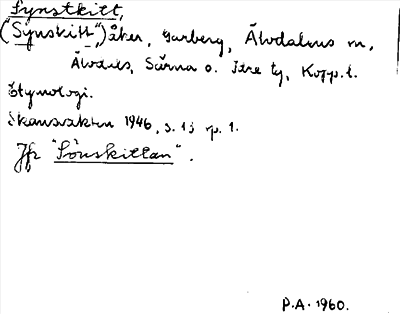 Synstkitt,
("Synskitt",) åker, Garberg, Älvdalens m,
Älvdals, Särna o. Idre tg, Kopp.l.
Etymologi.
Skansvakten 1946, s. 1; sp. 1.
Jfr "Sönskittan".
P.A. 1960.